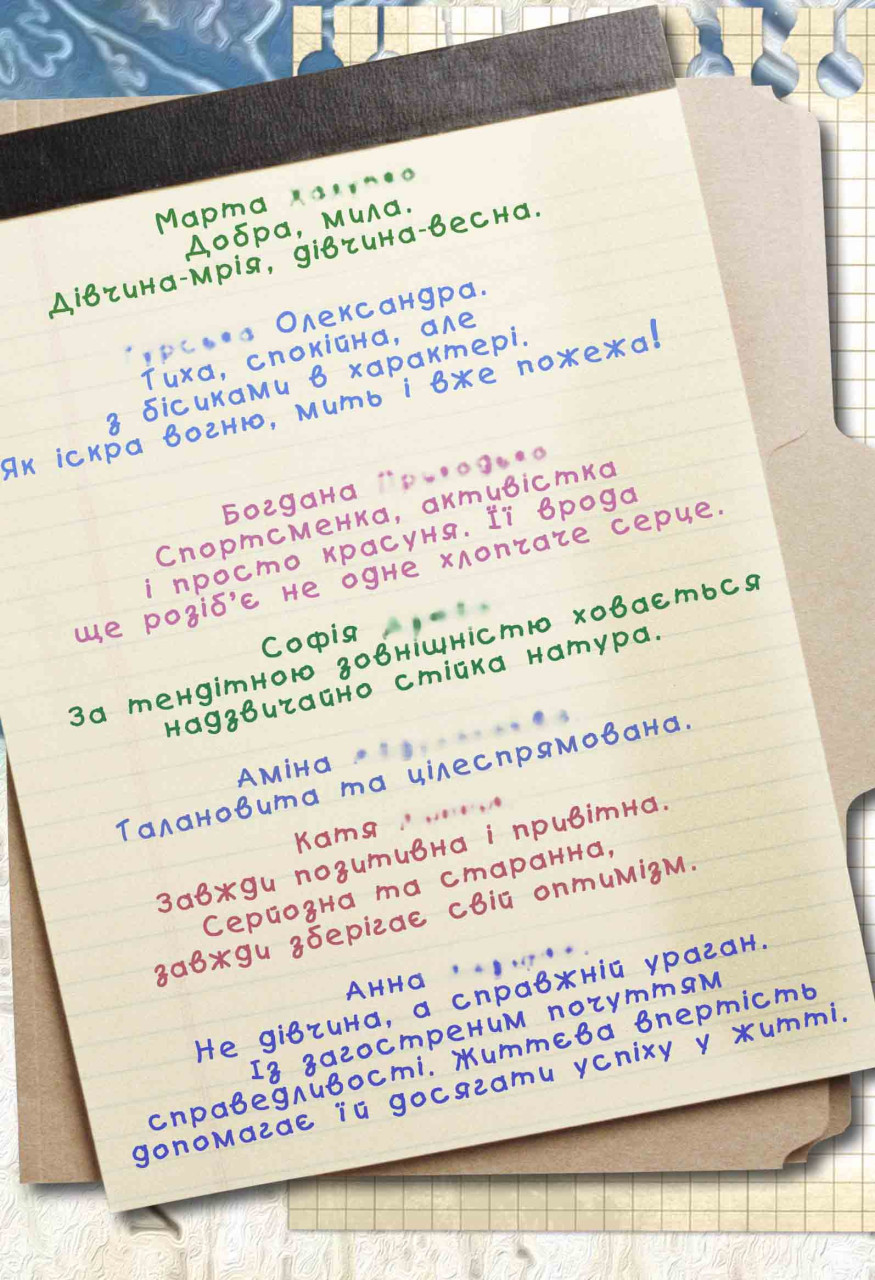 Марта
Добра, мила.
Дівчина-мрія, дівчина-весна.
Олександра.
Тиха, спокійна, але
з бісиками в характері.
Як іскра вогню, мить і вже пожежа!
Богдана
Спортсменка, активістка
і просто красуня. Її врода
ще розіб'є не одне хлопчаче серце.
Софія
За тендітною зовнішністю ховається
надзвичайно стійка натура.
Аміна
Талановита та цілеспрямована.
Катя
Завжди позитивна і привітна.
Серйозна та старанна,
завжди зберігає свій оптимізм.
Анна
Не дівчина, а справжній ураган.
Із загостреним почуттям
справедливості. Життєва впертість
допомагає їй досягати успіху у житті.